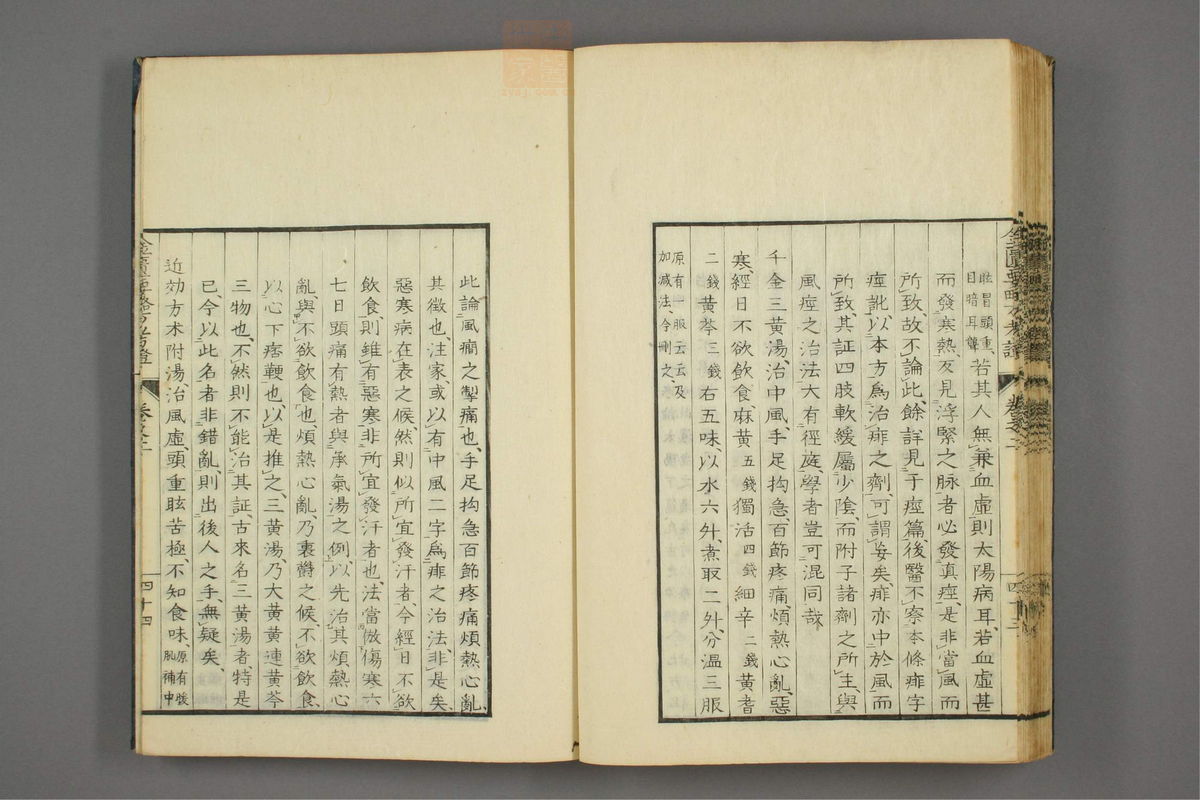 眩冒頭重、目暗耳聾、若其人無兼血虛則太陽病耳、若血虛甚
而發寒熱、反見浮緊之脉者必發真痙、是非當風而
所致、故不論此餘詳見于痙篇、後醫不察本條痱字
痙訛以本方爲治痱之劑、可謂妄矣、痱亦中於風而
所致、其証四肢軟緩屬少陰、而附子諸劑之所主、與
風痙之治法大有徑庭、學者豈可混同哉
千金三黃湯、治中風手足拘急、百節疼痛、煩熱心亂、惡
寒、經日不欲飲食、麻黃五錢獨活四錢細辛二錢黃耆
二錢黃芩三錢右五味、以水六升、煮取二升、分溫三服
原有一服云云及加減法、今刪之、
此論風癎之掣痛也、手足拘急百節疼痛煩熱心亂
其徵也、注家或以有中風二字爲痱之治法、非是矣、
惡寒病在表之候、然則似所宜發汗者、今經日不欲
飲食、則雖有惡寒非所宜發汗者也、法當倣傷寒六
七日頭痛有熱者與承氣湯之例、以先治其煩熱心
亂與不欲飲食也、煩熱心亂、乃裏欝之候、不欲飲食、
以心下痞鞕也、以是推之、三黃湯、乃大黃黃連黃芩
三物也、不然則不能治其証、古來名三黃湯者特是
已、今以此名者非錯亂、則出後人之手、無疑矣、
近効方朮附湯、治風虛、頭重眩苦極、不知食味、原有暖肌補中
卷之二
四十四